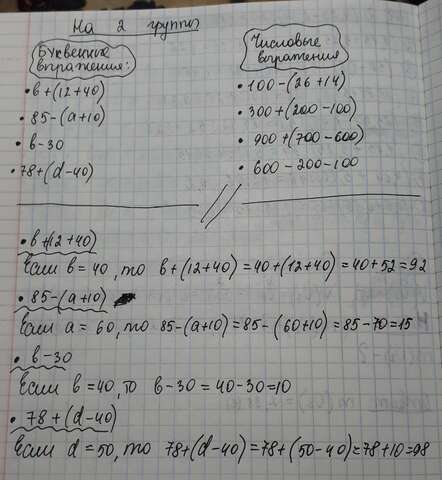 На 2 группы
Буквенные
выражения:
• в+(12+40)
• 85-(а+10)
• в-30
• 78+(d-40)
Числовые
выражения
• 100-(26+14)
• 300+(200-100)
• 900+(700-600)
• 600-200-100
• в+(12+40)
Если в=40, то в+(12+40)=40+(12+40)=40+52=92
• 85-(а+10)
Если а=60, то 85-(а+10)=85-(60+10)=85-70=15
• в-30
Если в=40, то в-30=40-30=10
• 78+(d-40)
Если d=50, то 78+(d-40)=78+(50-40)=78+10=98